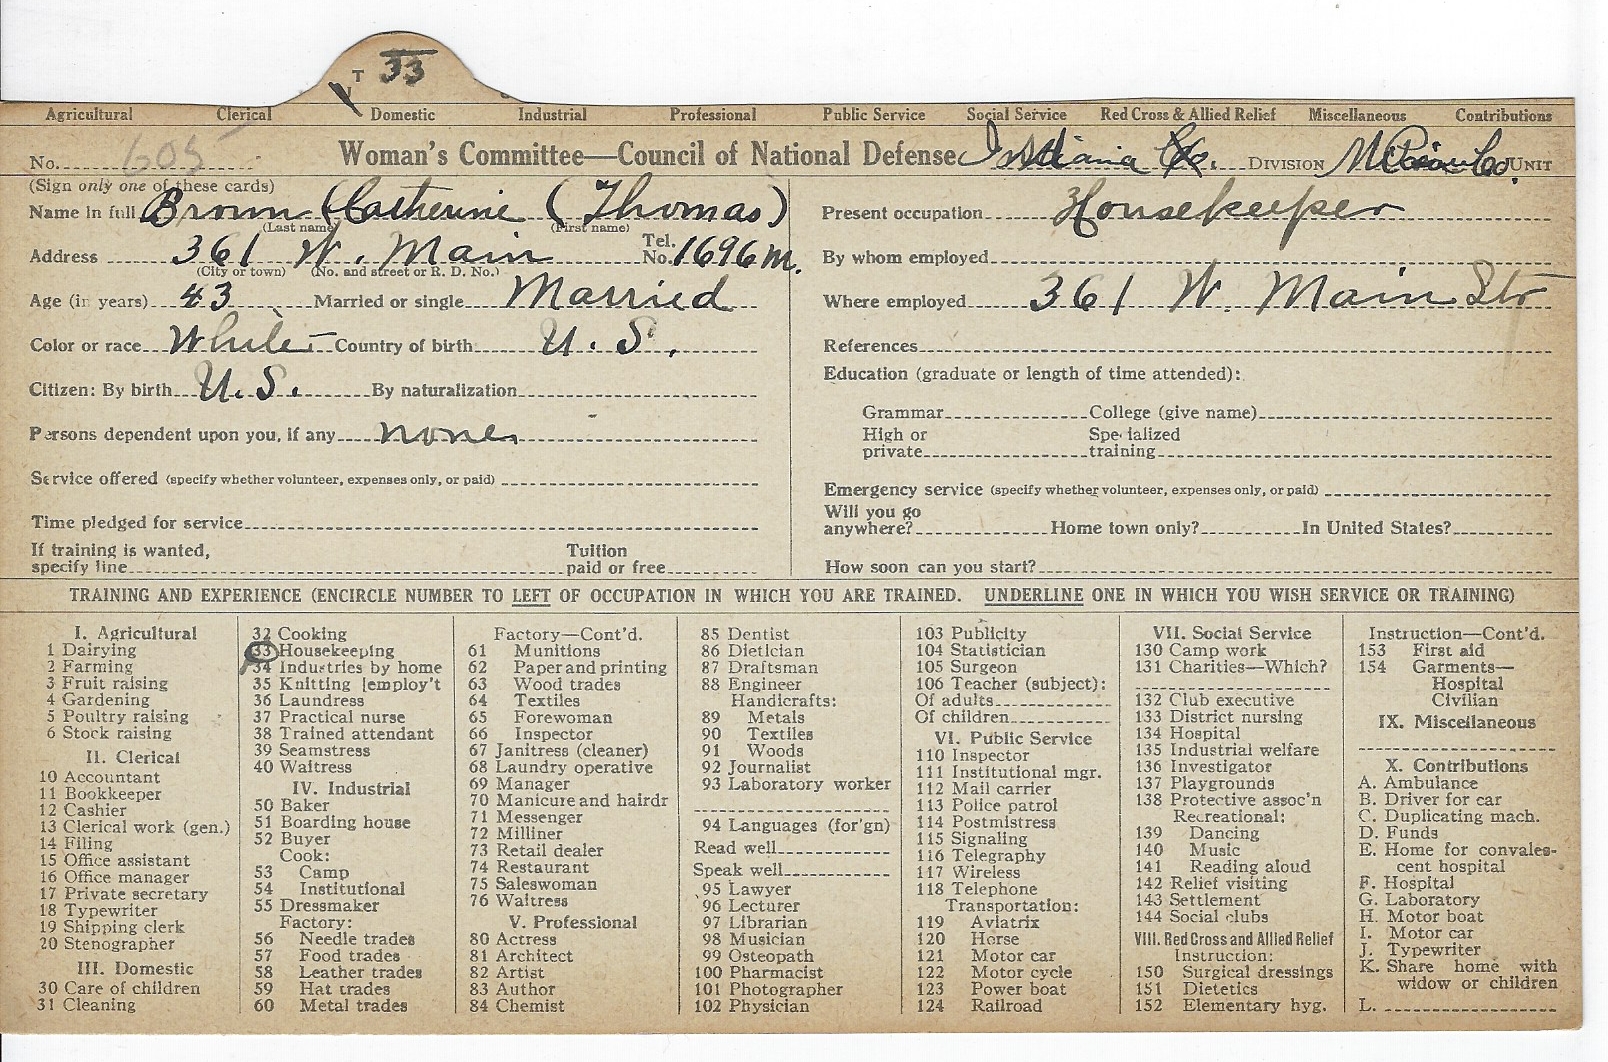 T 33
Agricultural Clerical Domestic Industrial Professional Public Service Social Service Red Cross & Allied Relief Miscellaneous Contributions
No. 605 Woman's Committee—Council of National Defense Indiana Co. DIVISION UNIT
(Sign only one of these cards)
Name in full Brown Catherine (Thomas)
(Last name) (First name)
Address 361 W. Main Tel. No. 1696 M.
(City or town) (No. and street or R. D. No.)
Age (in years) 43 Married or single Married
Color or race White Country of birth U. S.
Citizen: By birth U. S. By naturalization
Persons dependent upon you, if any none
Service offered (specify whether volunteer, expenses only, or paid)
Time pledged for service
If training is wanted,
specify line
Tuition
paid or free
Present occupation Housekeeper
By whom employed
Where employed 361 W. Main Str
References
Education (graduate or length of time attended):
Grammar College (give name)
High or
private
Specialized
training
Emergency service (specify whether volunteer, expenses only, or paid)
Will you go
anywhere? Home town only? In United States?
How soon can you start?
TRAINING AND EXPERIENCE (ENCIRCLE NUMBER TO LEFT OF OCCUPATION IN WHICH YOU ARE TRAINED. UNDERLINE ONE IN WHICH YOU WISH SERVICE OR TRAINING)
I. Agricultural
1 Dairying
2 Farming
3 Fruit raising
4 Gardening
5 Poultry raising
6 Stock raising
II. Clerical
10 Accountant
11 Bookkeeper
12 Cashier
13 Clerical work (gen.)
14 Filing
15 Office assistant
16 Office manager
17 Private secretary
18 Typewriter
19 Shipping clerk
20 Stenographer
III. Domestic
30 Care of children
31 Cleaning
32 Cooking
33 Housekeeping
34 Industries by home
35 Knitting [employ't
36 Laundress
37 Practical nurse
38 Trained attendant
39 Seamstress
40 Waitress
IV. Industrial
50 Baker
51 Boarding house
52 Buyer
Cook:
53 Camp
54 Institutional
55 Dressmaker
Factory:
56 Needle trades
57 Food trades
58 Leather trades
59 Hat trades
60 Metal trades
Factory—Cont'd.
61 Munitions
62 Paper and printing
63 Wood trades
64 Textiles
65 Forewoman
66 Inspector
67 Janitress (cleaner)
68 Laundry operative
69 Manager
70 Manicure and hairdr
71 Messenger
72 Milliner
73 Retail dealer
74 Restaurant
75 Saleswoman
76 Waitress
V. Professional
80 Actress
81 Architect
82 Artist
83 Author
84 Chemist
85 Dentist
86 Dietician
87 Draftsman
88 Engineer
Handicrafts:
89 Metals
90 Textiles
91 Woods
92 Journalist
93 Laboratory worker
94 Languages (for'gn)
Read well
Speak well
95 Lawyer
96 Lecturer
97 Librarian
98 Musician
99 Osteopath
100 Pharmacist
101 Photographer
102 Physician
103 Publicity
104 Statistician
105 Surgeon
106 Teacher (subject):
Of adults
Of children
VI. Public Service
110 Inspector
111 Institutional mgr.
112 Mail carrier
113 Police patrol
114 Postmistress
115 Signaling
116 Telegraphy
117 Wireless
118 Telephone
Transportation:
119 Aviatrix
120 Horse
121 Motor car
122 Motor cycle
123 Power boat
124 Railroad
VII. Social Service
130 Camp work
131 Charities—Which?
132 Club executive
133 District nursing
134 Hospital
135 Industrial welfare
136 Investigator
137 Playgrounds
138 Protective assoc'n
Recreational:
139 Dancing
140 Music
141 Reading aloud
142 Relief visiting
143 Settlement
144 Social clubs
VIII. Red Cross and Allied Relief
Instruction:
150 Surgical dressings
151 Dietetics
152 Elementary hyg.
Instruction—Cont'd.
153 First aid
154 Garments—
Hospital
Civilian
IX. Miscellaneous
X. Contributions
A. Ambulance
B. Driver for car
C. Duplicating mach.
D. Funds
E. Home for convales-
cent hospital
F. Hospital
G. Laboratory
H. Motor boat
I. Motor car
J. Typewriter
K. Share home with
widow or children
L.